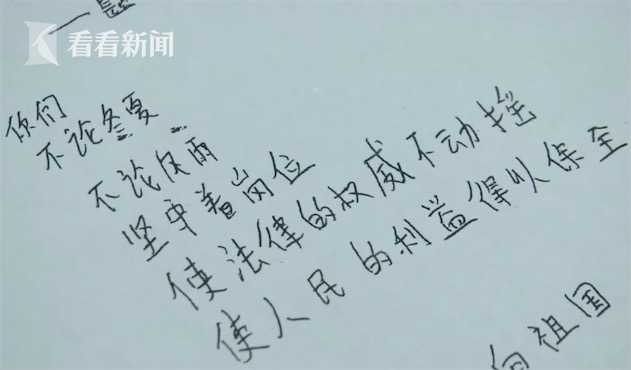 看看新闻
你们
不论冬夏
不论风雨
坚守着岗位
使法律的权威不动摇
使人民的利益得以保全
祖国